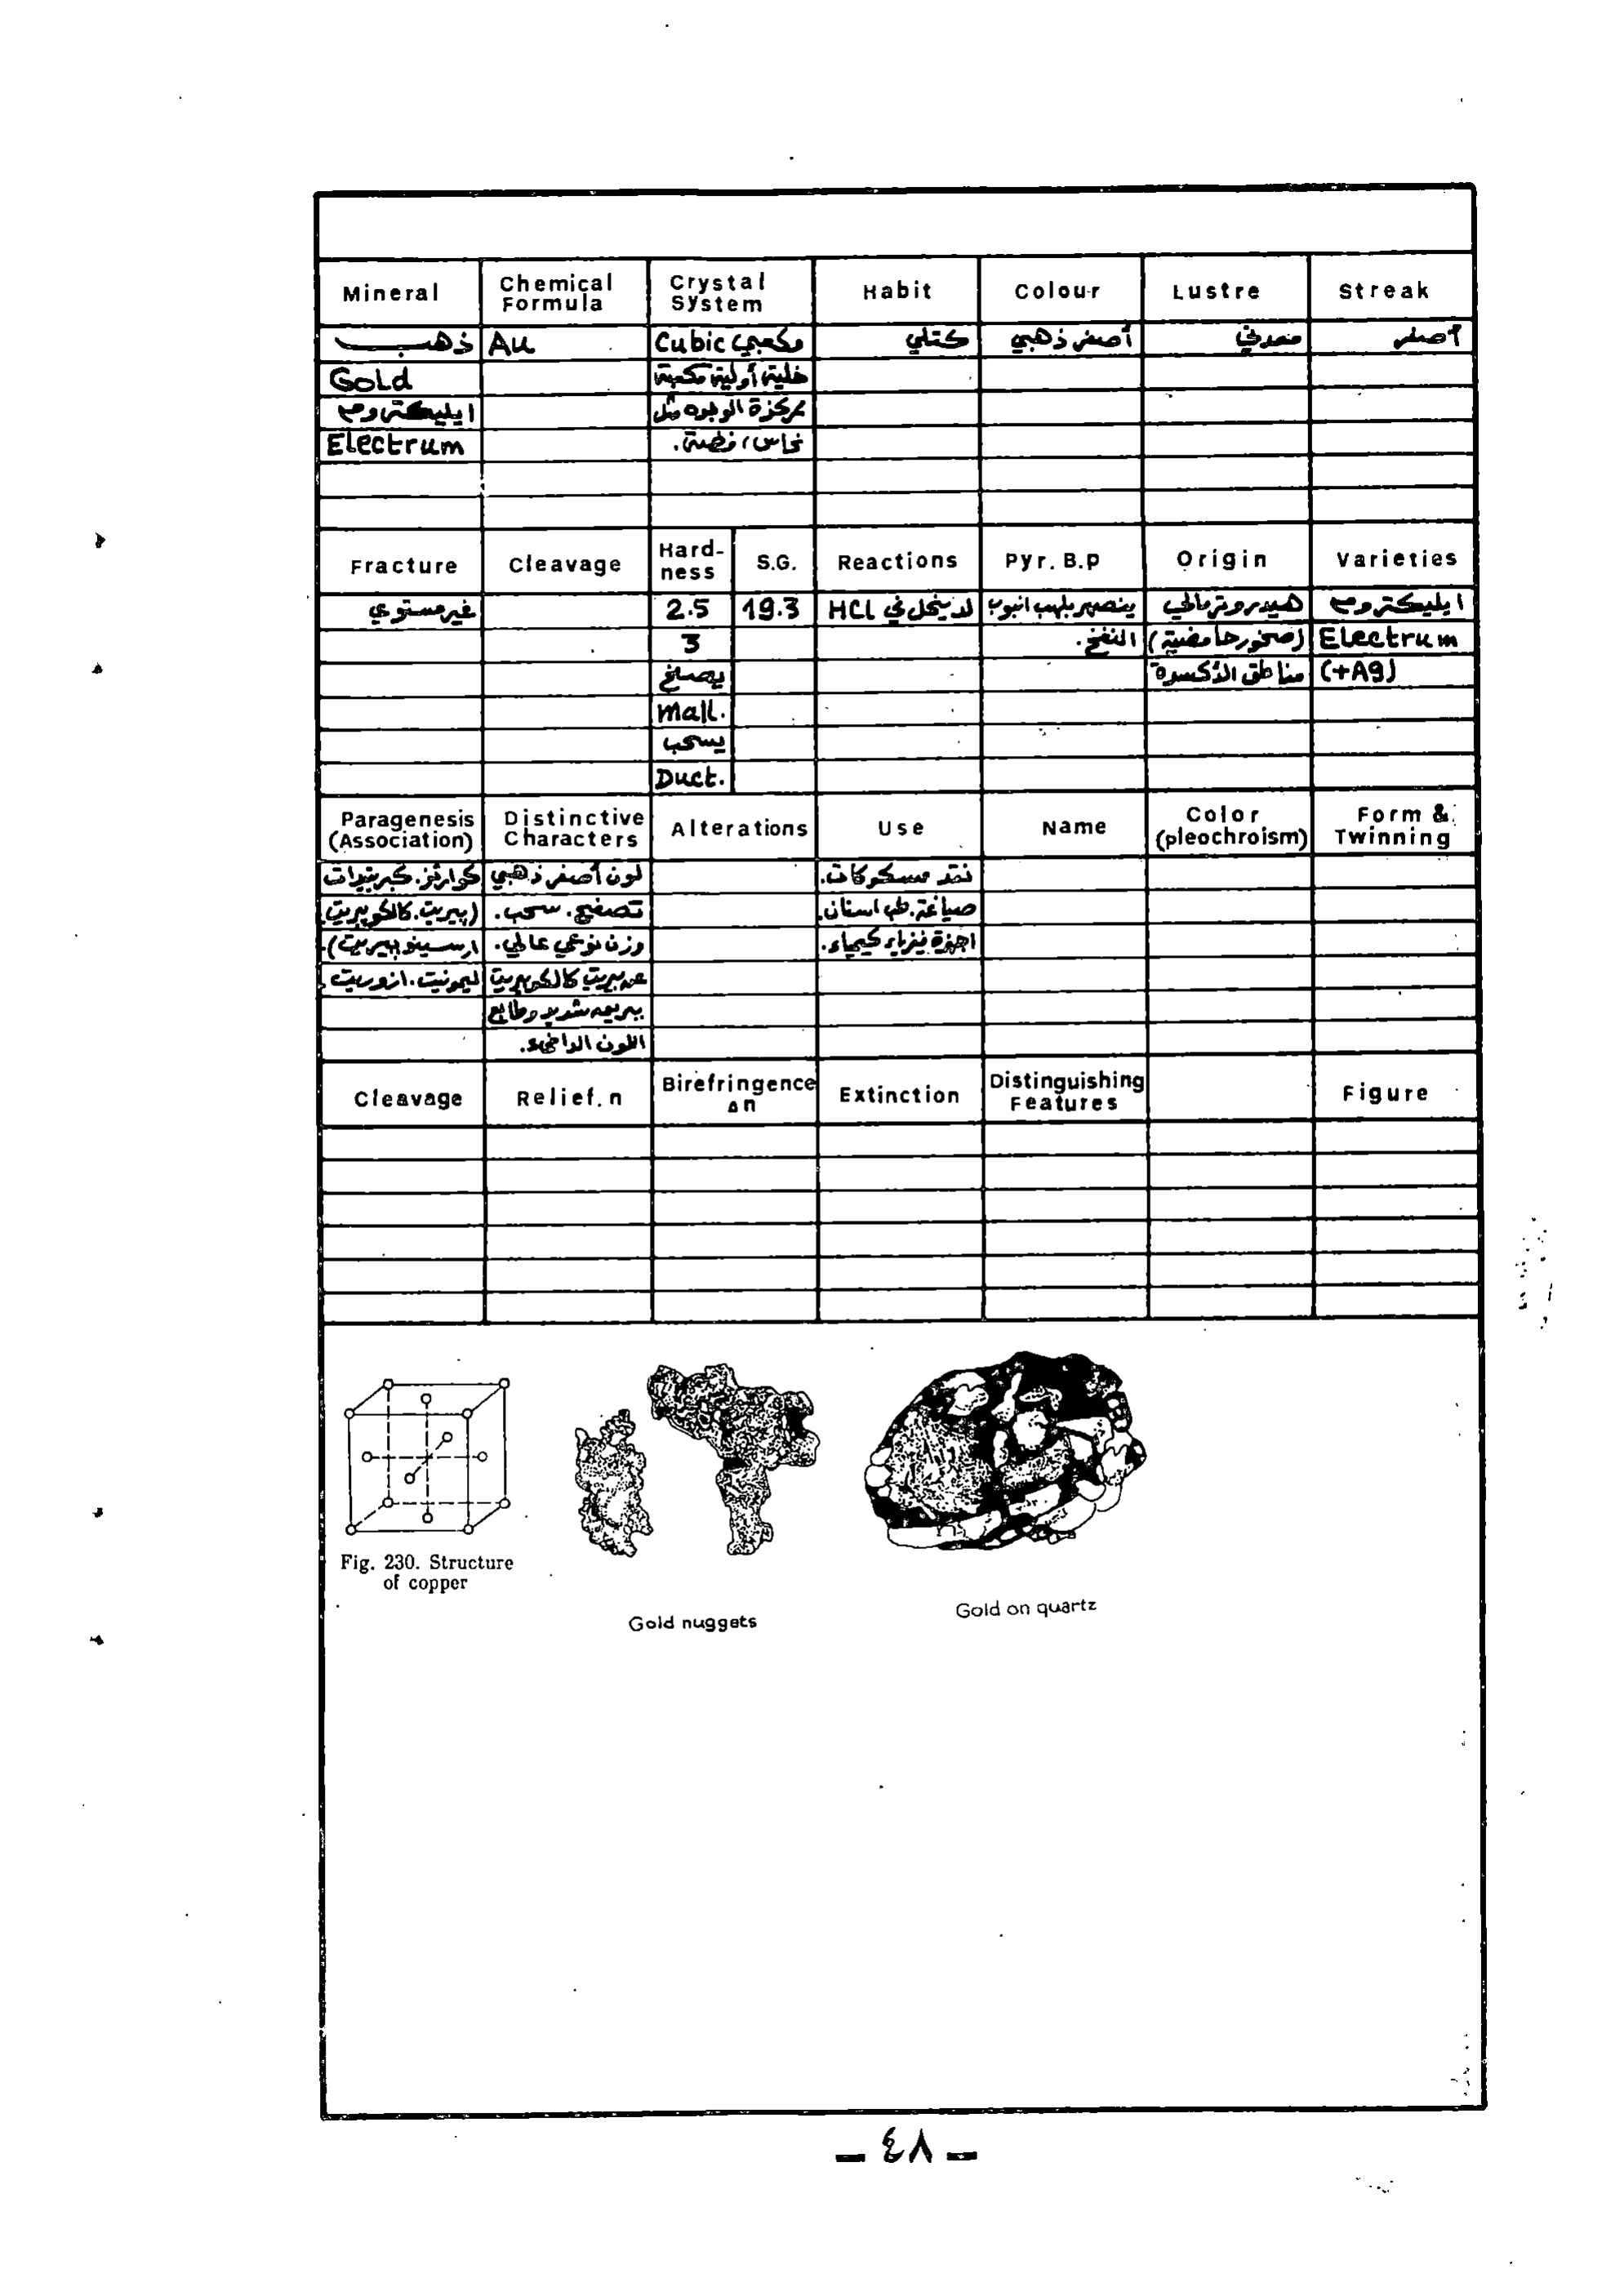 Mineral Chemical Formula Crystal System Habit Colour Lustre Streak
ذهب Au مكعبي Cubic كتلي أصفر ذهبي معدني أصفر
Gold خلية أولية مكعبة
ايليكتروم مركزة الوجوه مثل
Electrum نحاس، فضة.
Fracture Cleavage Hard-ness S.G. Reactions Pyr. B.p Origin Varieties
غير مستوي 2.5 19.3 لا ينحل في HCl ينصهر بلهب انبوب هيدروترمالي ايليكتروم
3 النفخ. (صخور حامضية) Electrum
يصفح مناطق الأكسدة (+Ag)
Mall.
يسحب
Duct.
Paragenesis (Association) Distinctive Characters Alterations Use Name Color (pleochroism) Form & Twinning
كوارتز. كبريتيدات لون أصفر ذهبي نقد مسكوكات.
(پيريت. كالكوپيريت. تصفيح. سحب. صياغة. طب اسنان.
ارسينوپيريت). وزن نوعي عالي. اجهزة فيزياء كيمياء.
ليمونيت. ازوريت عن پيريت كالكوپيريت
شديد وطابع
اللون
Cleavage Relief. n Birefringence Δn Extinction Distinguishing Features Figure
Fig. 230. Structure
of copper
Gold nuggets
Gold on quartz
– ٤٨ –